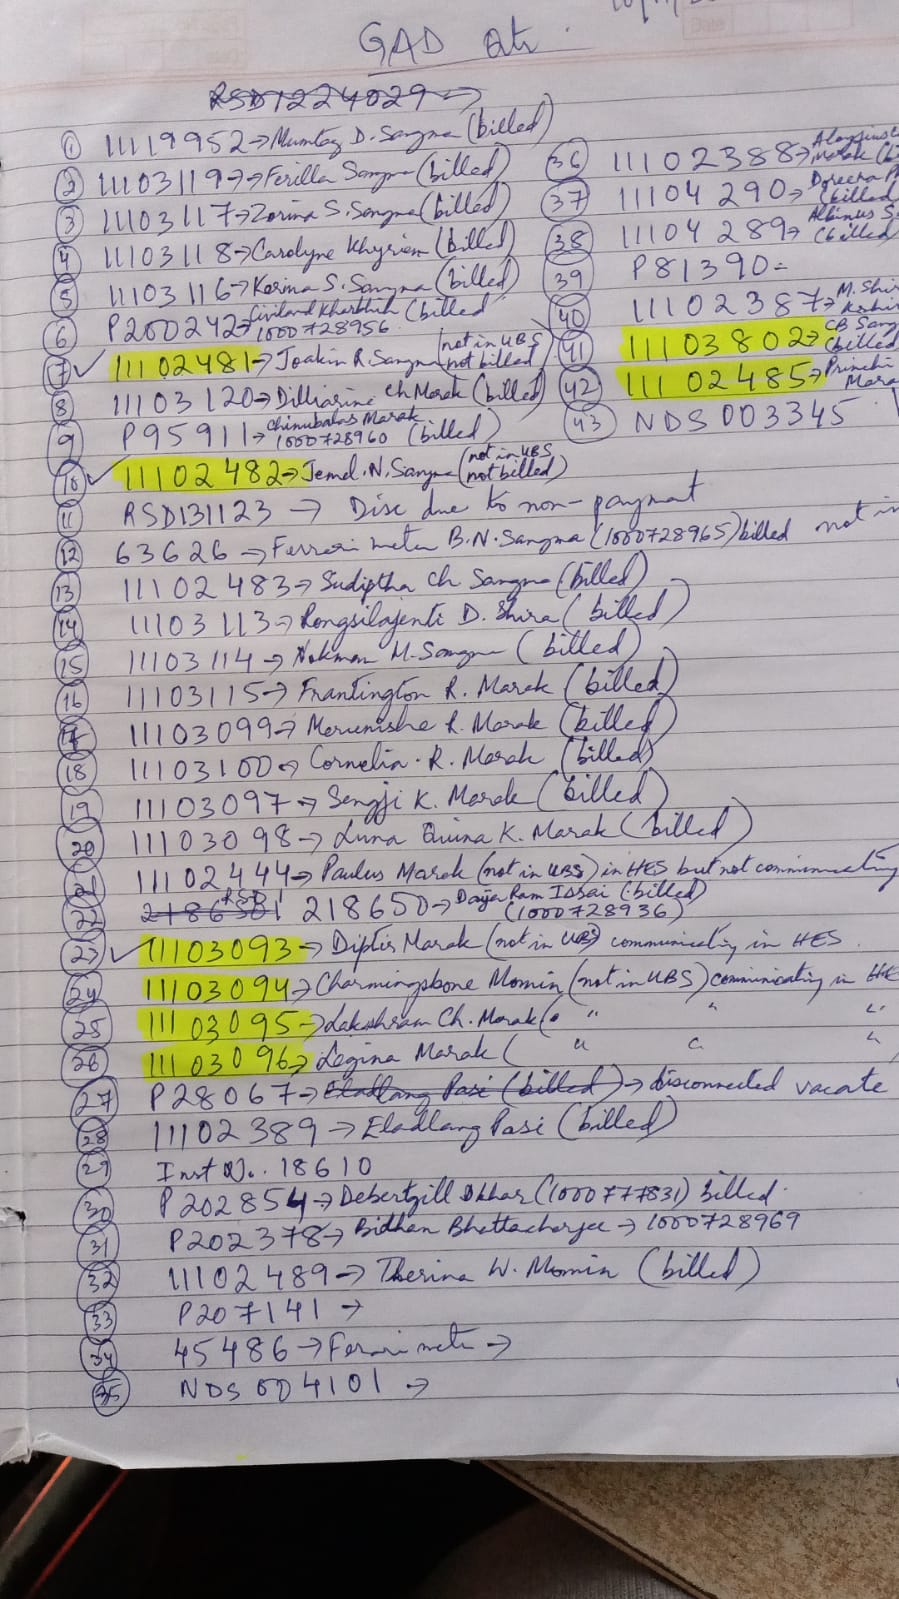 GAD Qtr.
RSD1224029 →
① 11119952 → Mumtaz D. Sangma (billed)
② 11103119 → Ferilla Sangma (billed)
③ 11103117 → Zorina S. Sangma (billed)
④ 11103118 → Carolyne Khyriem (billed)
⑤ 11103116 → Korina S. Sangma (billed)
⑥ P200242 → Civiland Kharbhih (billed)
1000728956
⑦ ✓ 11102481 → Joakin R. Sangma (not in UBS
not billed)
⑧ 11103120 → Dilliarine Ch Marak (billed)
⑨ P95911 → Chinubalas Marak
1000728960 (billed)
⑩ ✓ 11102482 → Jemel. N. Sangma (not in UBS
not billed)
⑪ RSD131123 → Disc due to non-payment
⑫ 63626 → Ferrari meter B.N. Sangma (1000728965) billed not in
⑬ 11102483 → Sudiptha Ch Sangma (billed)
⑭ 11103113 → Rongsilajenti D. Shira (billed)
⑮ 11103114 → Nokman M. Sangma (billed)
⑯ 11103115 → Frantington R. Marak (billed)
⑰ 11103099 → R. Marak (billed)
⑱ 11103100 → Cornelia. R. Marak (billed)
⑲ 11103097 → Sengji K. Marak (billed)
⑳ 11103098 → Luna K. Marak (billed)
㉑ 11102444 → Paulus Marak (not in UBS) in HES but not communicating
㉒ RSD 218650 → Daya Ram Issai (billed)
(1000728936)
㉓ ✓ 11103093 → Diptis Marak (not in UBS) communicating in HES.
㉔ 11103094 → Charmingstone Momin (not in UBS) communicating in HES
㉕ 11103095 → Lakshram Ch. Marak ( " " "
㉖ 11103096 → Legina Marak ( " " "
㉗ P28067 → Eladlang Pasi (billed) → disconnected vacate
㉘ 11102389 → Eladlang Pasi (billed)
㉙ Inst No. 18610
㉚ P202854 → Debertgill Dkhar (1000777831) billed.
㉛ P202378 → Bidhan Bhattacharjee → 1000728969
㉜ 11102489 → Therina W. Momin (billed)
㉝ P207141 →
㉞ 45486 → Ferrari meter →
㉟ NDS004101 →
㊱ 11102388 → Marak
㊲ 11104290 →
(billed
㊳ 11104289 → Albinus S.
(billed
㊴ P81390 -
㊵ 11102387 → M. Shi
㊶ 11103802 → CB Sang
(billed
㊷ 11102485 → Princhi
Mara
㊸ NDS003345